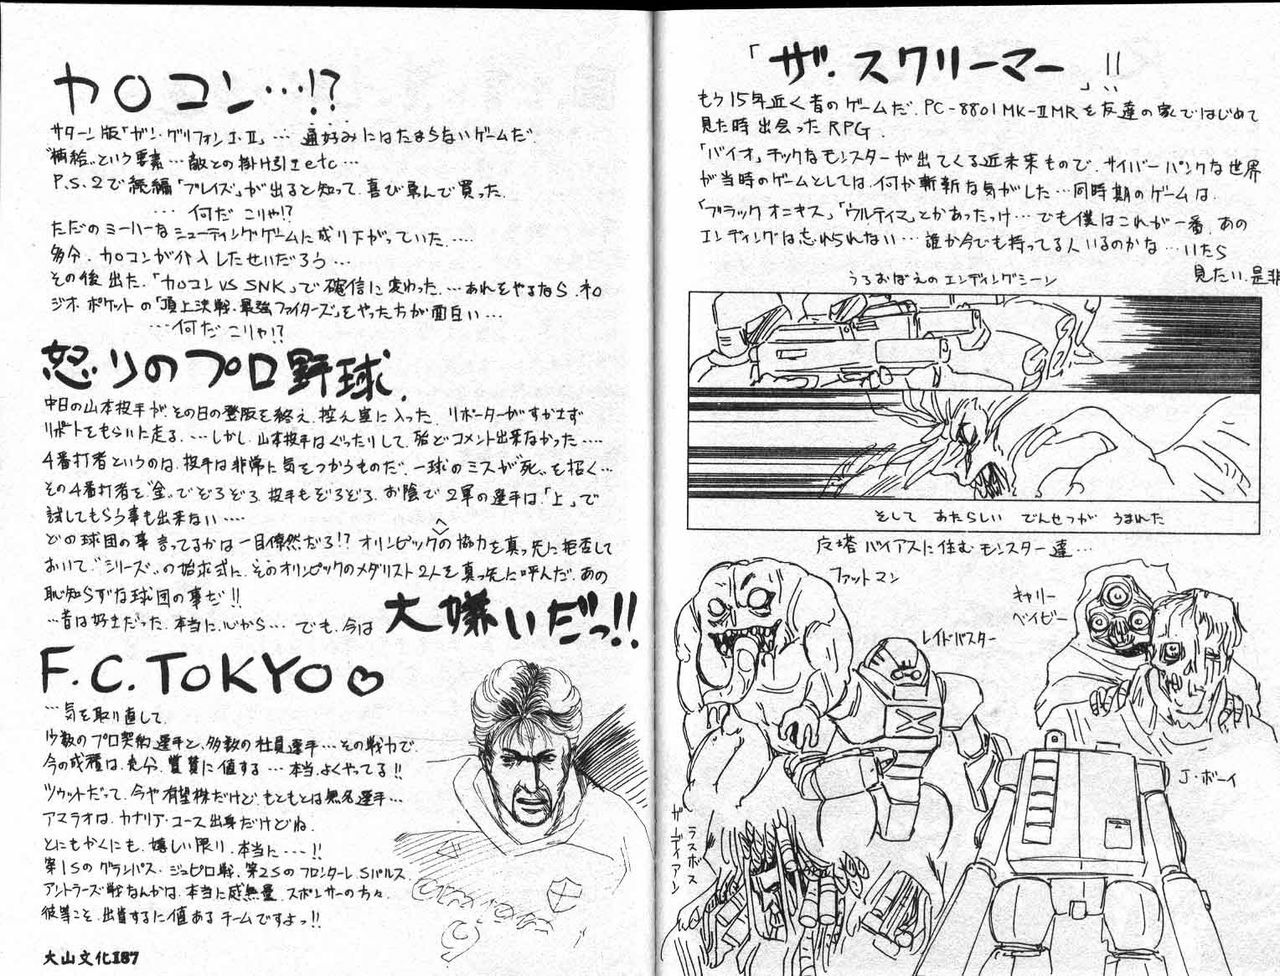 カ○コン…!?
サターン版「ガン・グリフォンI・II」… 通好みにはたまらないゲームだ
"補給"という要素… 敵との掛け引きetc…
P.S.2で続編「ブレイズ」が出ると知って、喜び勇んで買った。
… 何だ こりゃ!?
ただのミーハーなシューティングゲームに成り下がっていた….
多分、カ○コンが介入したせいだろう…
その後出た、「カ○コンVS SNK」で確信に変わった…あれをやるなら、ネオ
ジオ・ポケットの「頂上決戦・最強ファイターズ」をやった方が面白い…
…何だ こりゃ!?
怒りのプロ野球.
中日の山本投手が その日の登版を終え、控え室に入った。リポーターがすかさず
リポートをもらいに走る。…しかし、山本投手はぐったりして、殆どコメント出来なかった….
4番打者というのは、投手は非常に気をつかうものだ、一球のミスが"死"を招く…
その4番打者を"金"でぞろぞろ、投手もぞろぞろ、お陰で2軍の選手は、「上」で
試してもらう事も出来ない….
どの球団の事言ってるかは一目僚然だろ!? オリンピックへの協力を真っ先に拒否して
おいて、"シリーズ"の始球式に、そのオリンピックのメダリスト2人を真っ先に呼んだ、あの
恥知らずな球団の事だ!!
…昔は好きだった、本当に、心から… でも、今は 大嫌いだっ!!
F.C.TOKYO♡
…気を取り直して、
少数のプロ契約選手と、多数の社員選手…その戦力で、
今の成積は、充分、賞賛に値する…本当、よくやってる!!
ツゥットだって、今や有望株だけど、もともとは無名選手…
アマラオは、カナリア・コース出身だけどね。
とにもかくにも、嬉しい限り、本当に…!!
第1Sのグランパス・ジュビロ戦、第2Sのフロンターレ Sパルス
アントラーズ戦なんかは、本当に感無量、スポンサーの方々、
彼等こそ、出資するに値あるチームですよっ!!
大山文化187
「ザ・スクリーマー」!!
もう15年近く昔のゲームだ、PC-8801MK-IIMRを友達の家ではじめて
見た時出会ったRPG。
「バイオ」チックなモンスターが出てくる近未来もので、サイバーパンクな世界
が当時のゲームとしては、何か斬新な気がした…同時期のゲームは、
「ブラックオニキス」「ウルティマ」とかあったっけ…でも僕はこれが一番、あの
エンディングは忘れられない…誰か今でも持ってる人いるのかな…いたら
見たい、是非
うろおぼえのエンディングシーン
そして あたらしい でんせつが うまれた
反塔バイアスに住むモンスター達…
ファットマン
レイドバスター
キャリー
ベイビー
J・ボーイ
ラスボス
ガーディアン